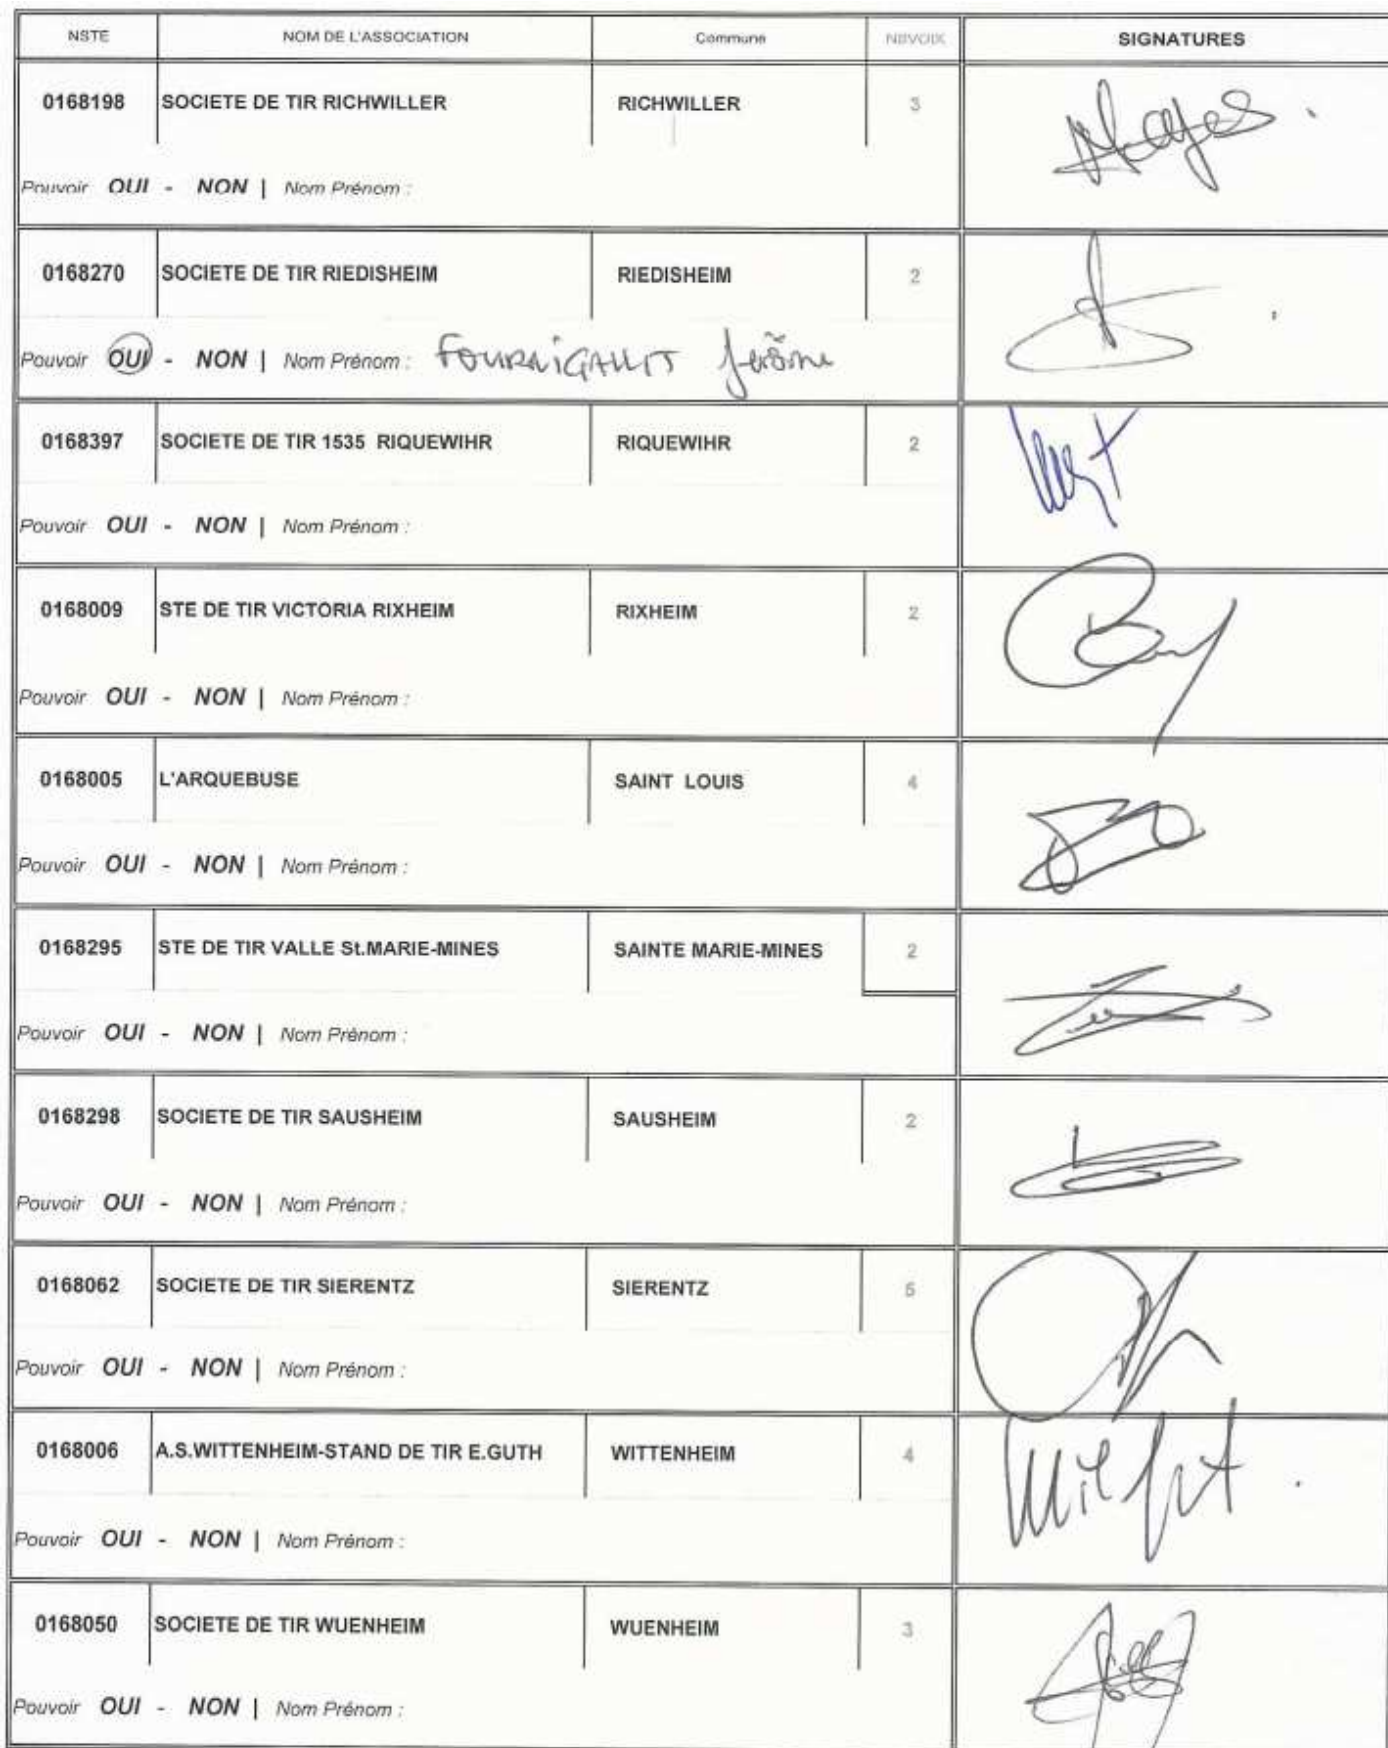 NSTE NOM DE L'ASSOCIATION Commune NBVOIX SIGNATURES
0168198 SOCIETE DE TIR RICHWILLER RICHWILLER 3
Pouvoir OUI - NON | Nom Prénom :
0168270 SOCIETE DE TIR RIEDISHEIM RIEDISHEIM 2
Pouvoir OUI - NON | Nom Prénom : Jérôme
0168397 SOCIETE DE TIR 1535 RIQUEWIHR RIQUEWIHR 2
Pouvoir OUI - NON | Nom Prénom :
0168009 STE DE TIR VICTORIA RIXHEIM RIXHEIM 2
Pouvoir OUI - NON | Nom Prénom :
0168005 L'ARQUEBUSE SAINT LOUIS 4
Pouvoir OUI - NON | Nom Prénom :
0168295 STE DE TIR VALLE St.MARIE-MINES SAINTE MARIE-MINES 2
Pouvoir OUI - NON | Nom Prénom :
0168298 SOCIETE DE TIR SAUSHEIM SAUSHEIM 2
Pouvoir OUI - NON | Nom Prénom :
0168062 SOCIETE DE TIR SIERENTZ SIERENTZ 5
Pouvoir OUI - NON | Nom Prénom :
0168006 A.S.WITTENHEIM-STAND DE TIR E.GUTH WITTENHEIM 4
Pouvoir OUI - NON | Nom Prénom :
0168050 SOCIETE DE TIR WUENHEIM WUENHEIM 3
Pouvoir OUI - NON | Nom Prénom :